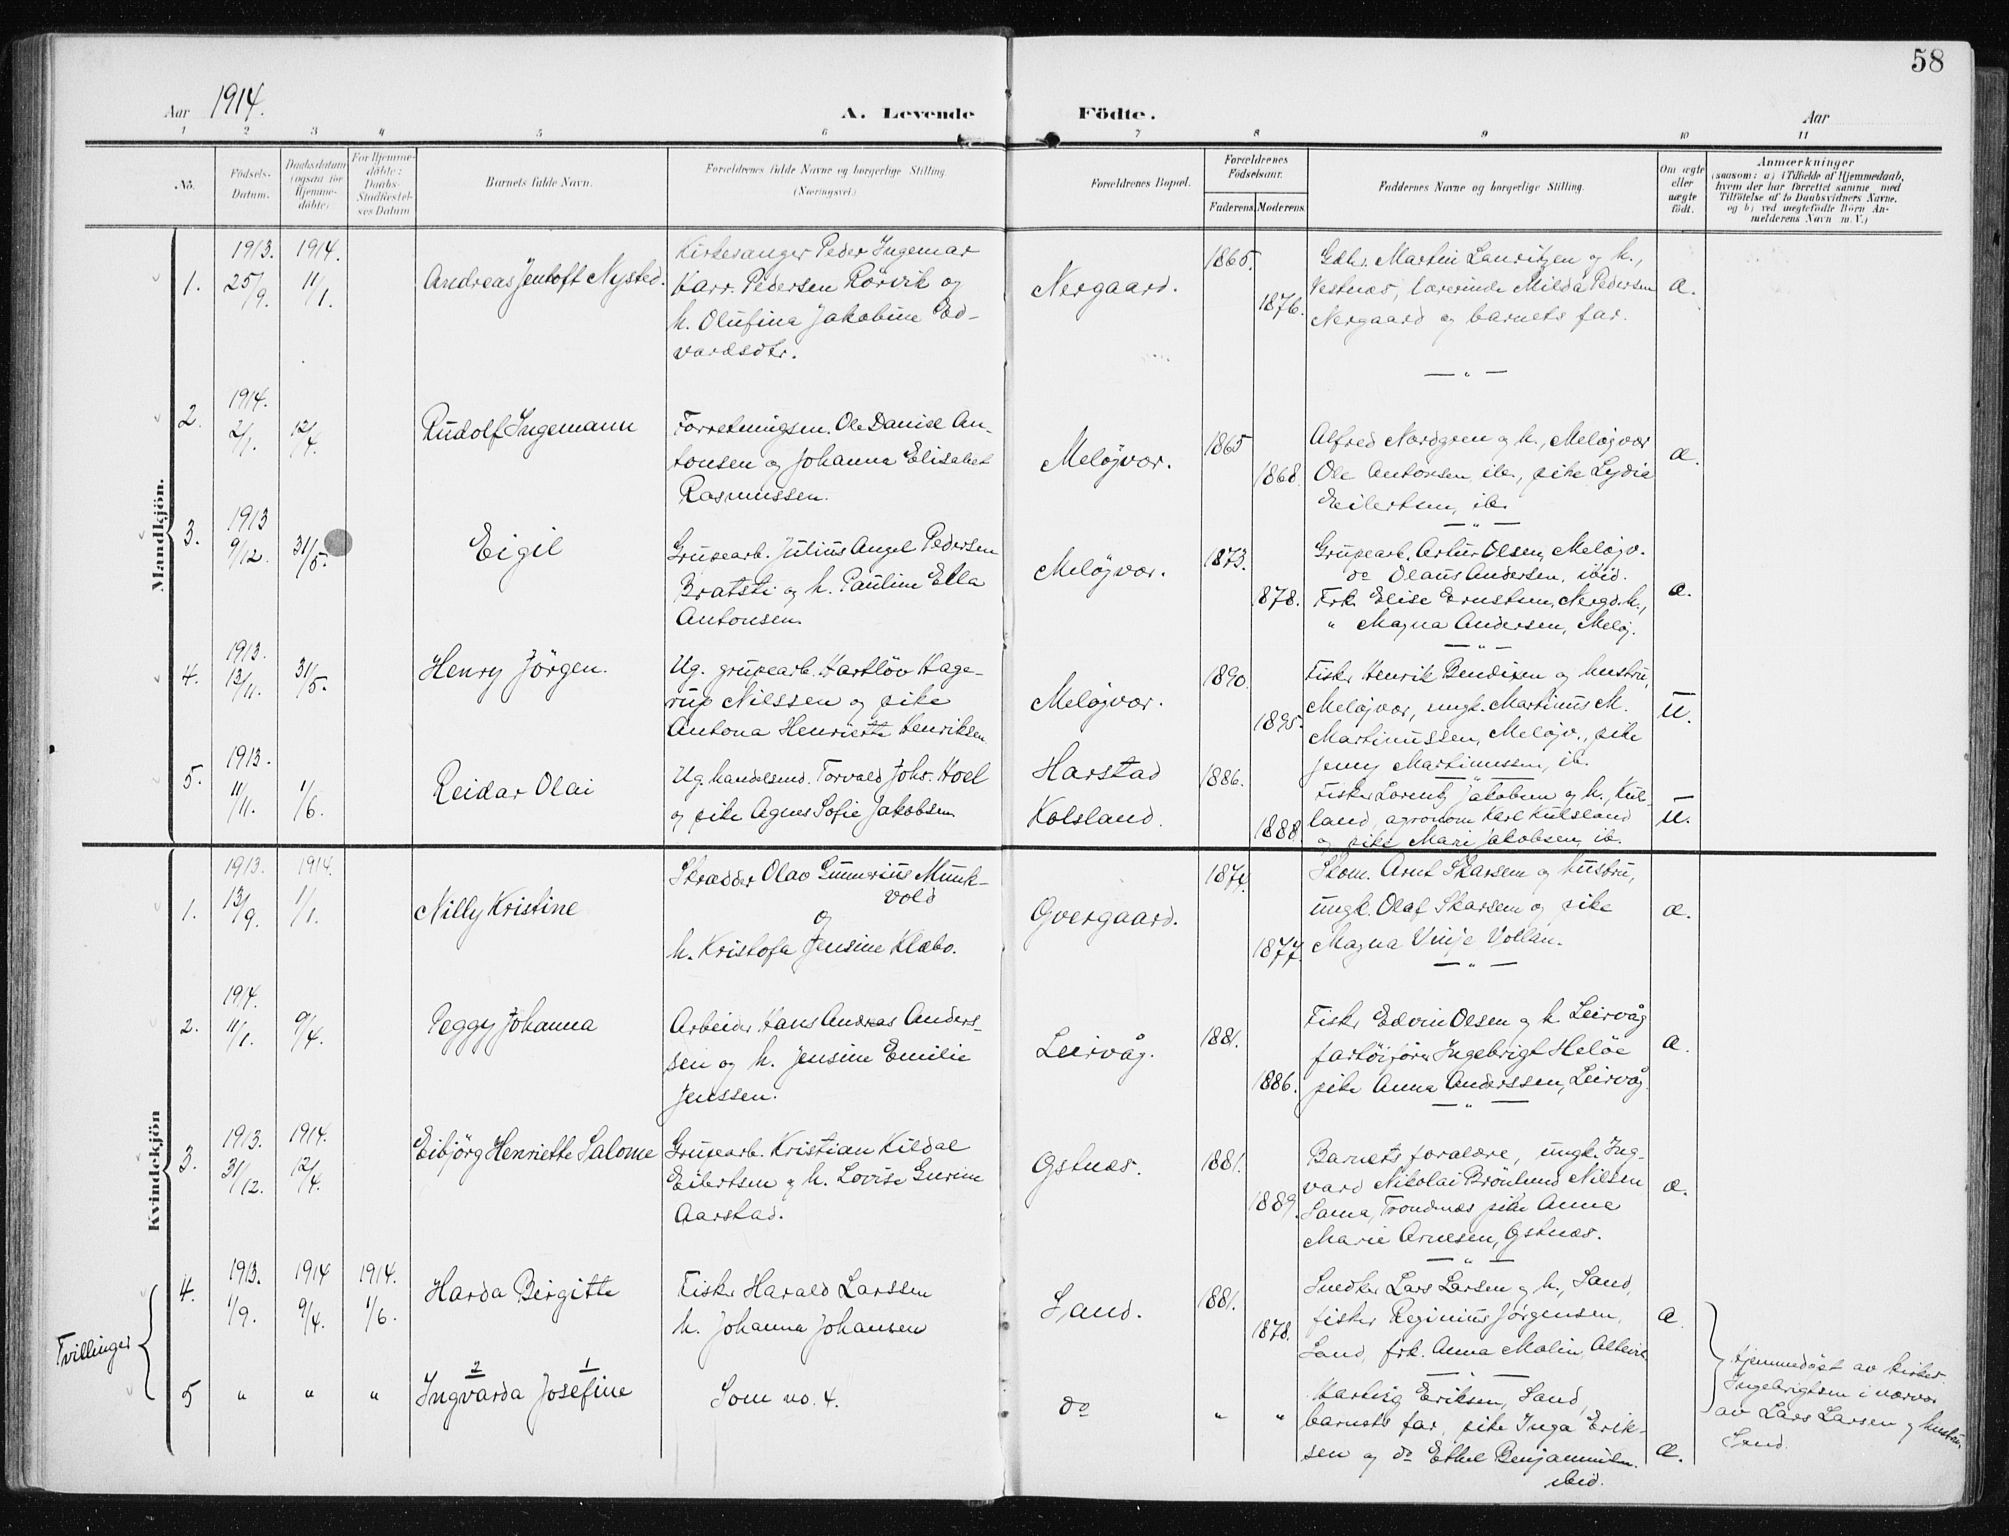 58
Aar 1914.
A. Levende Födte.
Aar
1 2 3 4 5 6 7 8 9 10 11
No.
Födsels-Datum.
Daabsdatum (ogsaa for Hjemme-döbte)
For Hjemme-döbte: Daabs-Stadfæstel-ses Datum
Barnets fulde Navn.
Forældrenes fulde Navne og borgerlige Stilling (Næringsvei.)
Forældrenes Bopæl.
Forældrenes Födselsaar.
Faderens Moderens
Faddernes Navne og borgerlige Stilling.
Om ægte eller uægte födt.
Anmærkninger
(saasom: a) i Tilfælde af Hjemmedaab,
hvem der har forrettet samme, med
Tilföielse af to Daabsvidners Navne.
og b) ved uægtefödte Börn An-
melderens Navn m. V.)
Mandkjön.
1.
1913. 25/9.
1914. 11/1.
Andreas Jentoft Nysted.
Kirkesanger Peder Ingemar
Karr. Pedersen Rörvik og
h. Olufina Jakobine Ed-
vardsdtr.
Nergaard.
1865.
1876.
Gdbr. Martin Lauritzen og h.,
Vestnæs, lærerinde Milda Pedersen
Nergaard og barnets far.
æ.
2.
1914. 2/1.
12/4.
Rudolf Ingemann
Forretningsm. Ole Danise An-
tonsen og Johanna Elisabet
Rasmussen.
Meløjvær.
1865
1868.
Alfred Nordgren og h., Meløjvær
Ole Antonsen ib., pike Lydia
Eilertsen, ib.
æ.
3.
1913 9/12.
31/5.
Eigil
Grubearb. Julius Angel Pedersen
Bratsti og h. Pauline Etla
Antonsen
Meløjvær.
1873.
1878.
Grubearb. Artur Olsen, Meløjv.
do Olaus Andersen, ibid.
Frk. Elise Ernstsen, Nergdh.,
" Magna Andersen, Meløj.
æ.
4.
1913. 13/11.
31/5.
Henry Jörgen.
Ug. grubearb. Hartløv Hage-
rup Nilssen og pike
Antona Henriette Henriksen
Meløjvær.
1890.
1895.
Fisker Henrik Bendixen og hustru,
Meløjvær, ungk. Martinus M.
Martinussen, Meløjv., pike
Jenny Martinussen, ib.
u.
5.
1913. 11/11.
1/6.
Reidar Olai
Ug. handelsmd. Torvald Johs. Hoel
og pike Agnes Sofie Jakobsen
Harstad
Kolsland.
1886.
1888.
Fisker Lorentz Jakobsen og h., Kuls-
land, agronom Karl Kulsland
og pike Marie Jakobsen, ib.
u.
Kvindekjön
1.
1913. 13/9.
1914. 1/1.
Nilly Kristine
Skrædder Olav Gunnerius Munk-
vold
og
h. Kristofa Jensine Klæbo.
Øvergaard.
1874.
1877.
Skom. Arnt Skarsem og hustru,
ungk. Olaf Skarsem og pike
Magna Vinje Vollan.
æ.
2.
1914. 11/1.
9/4.
Peggy Johanna
Arbeider Hans Andreas Anders-
sen og h. Jensine Emilie
Jenssen.
Leirvåg.
1881.
1886.
Fisker Edvin Olsen og h. Leirvåg
fartøifører Ingebrigt Heløe
pike Anna Anderssen, Leirvåg
æ.
3.
1913. 31/12.
1914. 12/4.
Eibjörg Henriette Salome
Grubearb. Kristian Kildal
Eilertsen og h. Lovise Gurine
Aarstad.
Østnæs.
1881.
1889.
Barnets forældre, ungk. Ing-
vard Nikolai Brönlund Nilsen
Sama, Trondenæs pike Anna
Marie Arnesen, Østnæs.
æ.
Tvillinger
4.
1913. 1/9.
1914 9/4.
1914. 1/6.
Harda Birgitte
Fisker Harald Larssen
h. Johanna Johansen
Sand.
1881.
1878.
Snedker Lars Larsen og h., Sand,
fisker Reginius Jørgensen,
Sand, frk. Anna Malin
æ.
Hjemmedöbt av kirkes.
Ingebrigtsen i nærvær
av Lars Larsen og hustru,
Sand.
5
" " "
2 1
Ingvarda Josefine
Som no. 4.
do
" "
Hartvig Eriksen, Sand,
barnets far, pike Inga Erik-
sen og do Ethel Benjaminsen.
ibid.
æ.